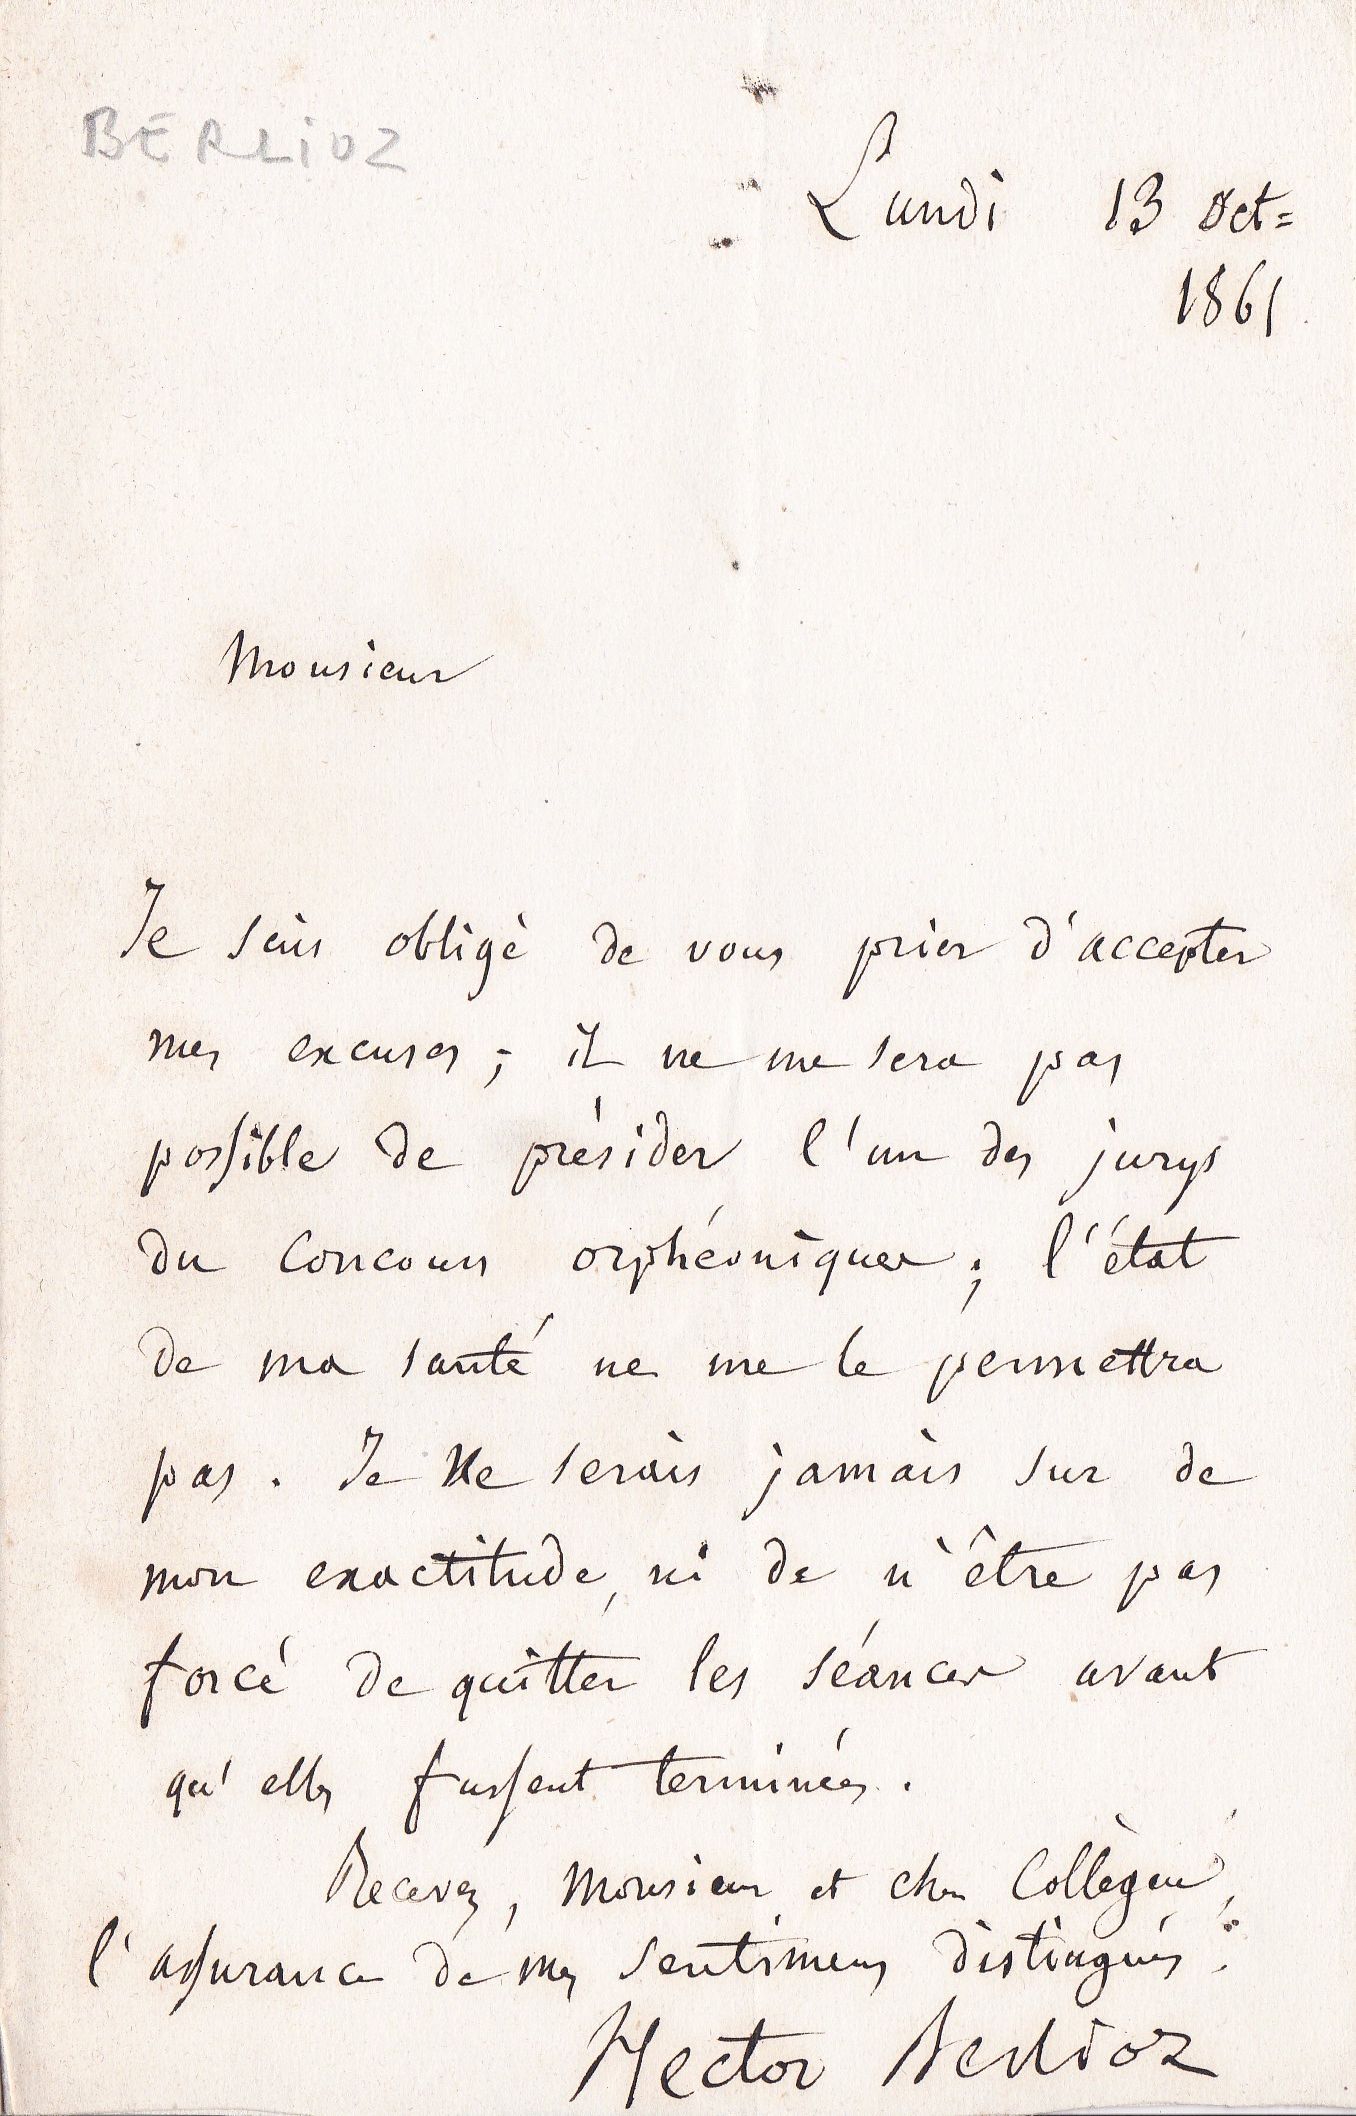 BERLIOZ
Lundi 13 Oct=
1861
Monsieur
Je suis obligé de vous prier d'accepter
mes excuses ; il ne me sera pas
possible de présider l'un des jurys
du Concours orphéoniques ; l'état
de ma santé ne me le permettra
pas. Je ne serais jamais sur de
mon exactitude, ni de n'être pas
forcé de quitter les séances avant
qu'elles fussent terminées.
Recevez, Monsieur et cher Collègue,
l'assurance de mes sentimens distingués.
Hector Berlioz